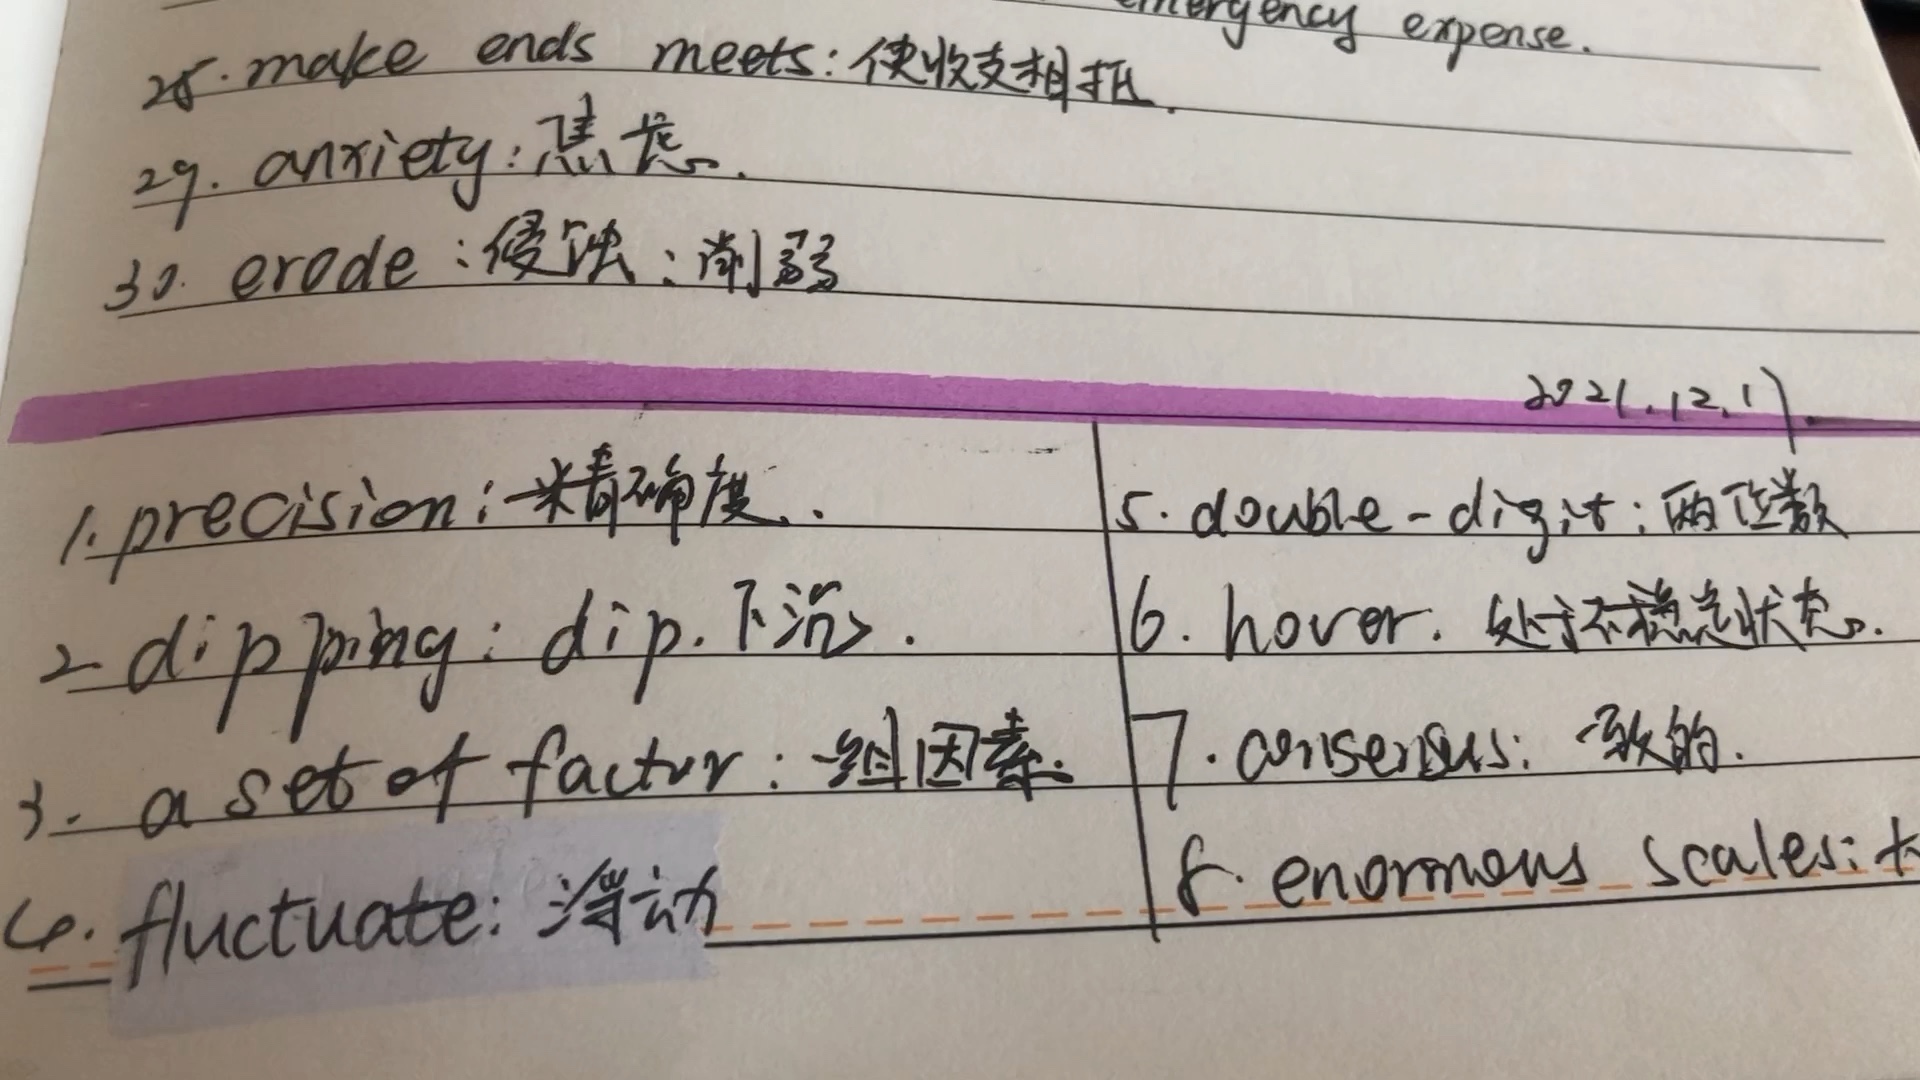 emergency expense.
28. make ends meets: 使收支相抵.
29. anxiety: 焦虑.
30. erode: 侵蚀; 削弱
2021.12.17.
1. precision: 精确度.
2. dipping: dip. 下沉.
3. a set of factor: 一组因素.
4. fluctuate: 浮动
5. double-digit: 两位数
6. hover. 处于不稳定状态.
7. consensus: 一致的.
8. enormous scales: 大